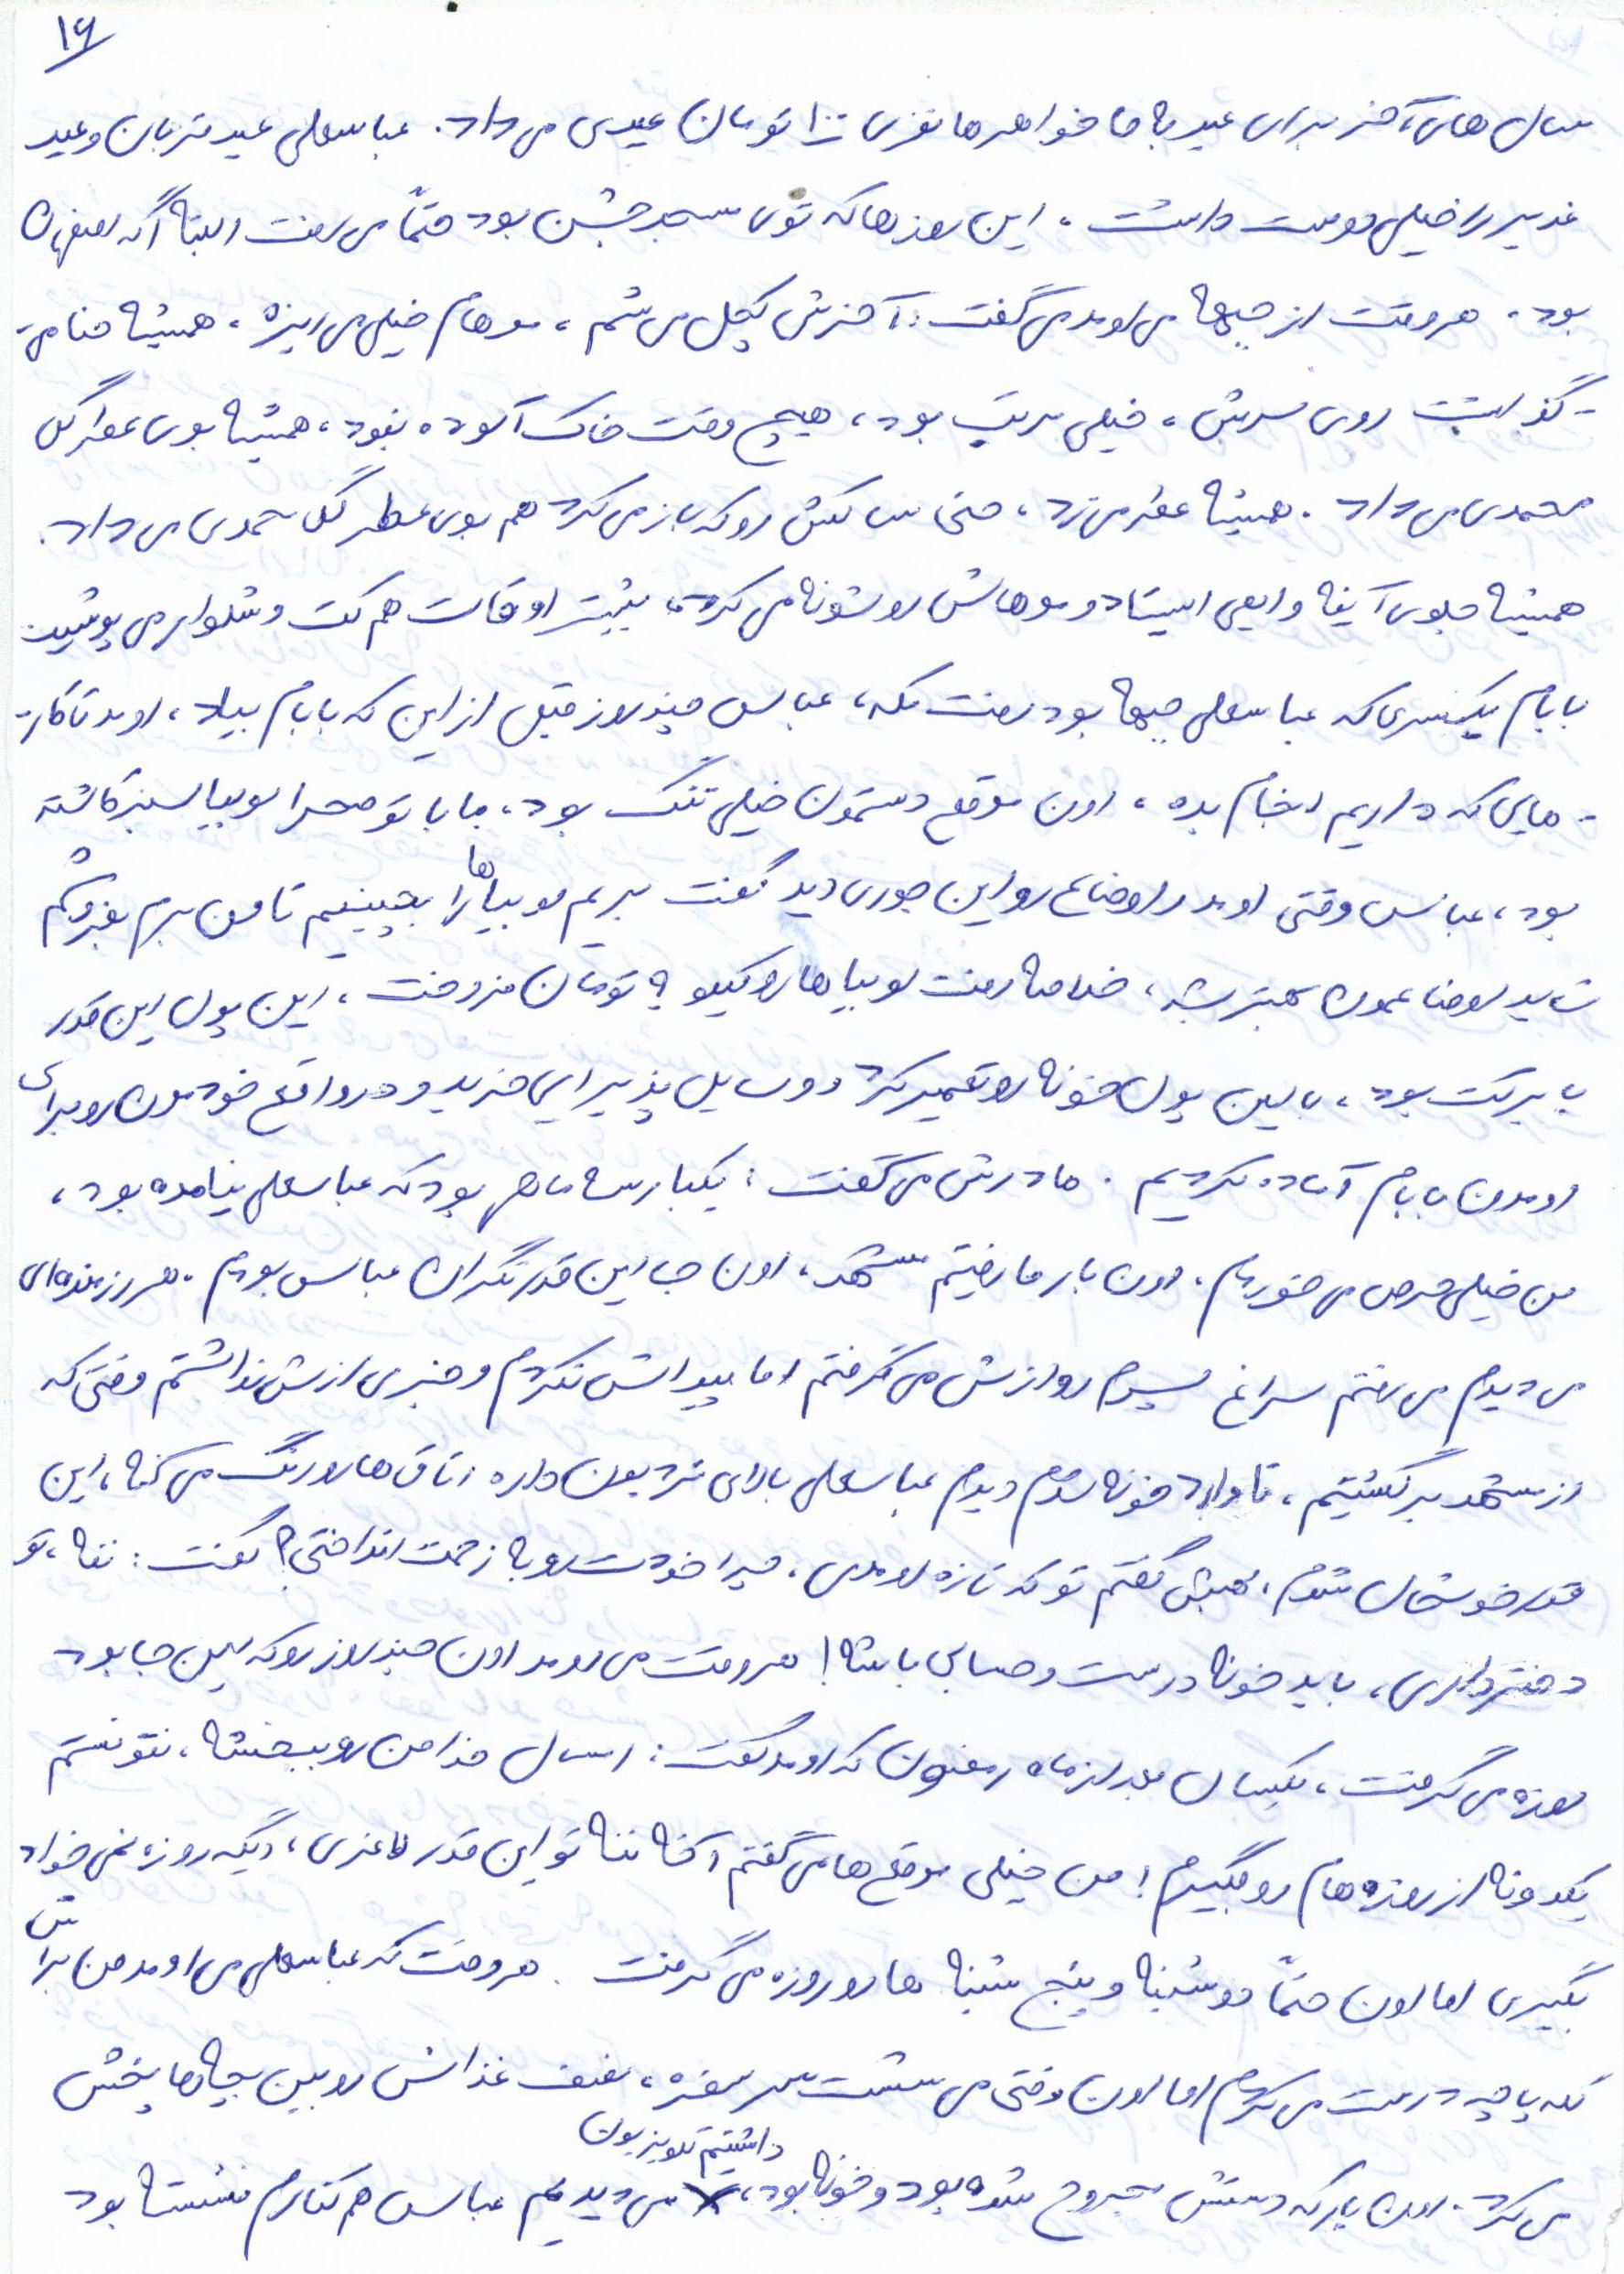 ۱۶
سال های آخر برای عید به ما خواهرها نفری ۱۰۰ تومان عیدی می داد. عباسعلی عید قربان و عید
غدیر را خیلی دوست داشت. این روزها که توی مسجد جشن بود حتماً می رفت البته اگه اصفهان
بود. هر وقت از جبهه می اومد می گفت: آخرش کچل می شم، موهام خیلی می ریزه، همیشه حنا می-
-گذاشت روی سرش، خیلی مرتب بود، هیچ وقت خاک آلوده نبود، همیشه بوی عطر گل
محمدی می داد. همیشه عطر می زد، حتی ساکش رو که باز می کرد هم بوی عطر گل محمدی می داد.
همیشه جلوی آینه وایمی ایستاد و موهاش رو شونه می کرد، بیشتر اوقات هم کت و شلوار می پوشید
بابام یکسری که عباسعلی جبهه بود رفت مکه، عباس چند روز قبل از این که بابام بیاد، اومد تا کار-
-هایی که داریم انجام بده، اون موقع دستمون خیلی تنگ بود، بابا تو صحرا لوبیا سبز کاشته
بود، عباس وقتی اومد و اوضاع رو این جوری دید گفت بریم لوبیاها را بچینیم تا من برم بفروشم
شاید اوضاعمون بهتر بشه، خلاصه رفت لوبیاها رو کیلو ۹ تومان فروخت، این پول این قدر
با برکت بود، با این پول خونه رو تعمیر کرد و وسایل پذیرایی خرید و در واقع خودمون رو برای
اومدن بابام آماده کردیم. مادرش می گفت: یکبار سه ماهی بود که عباسعلی نیامده بود،
من خیلی حرص می خوردم، اون بار ما رفتیم مشهد، اون جا این قدر نگران عباس بودم. هر رزمنده ای
می دیدم می رفتم سراغ پسرم رو ازش می گرفتم اما پیداش نکردم و خبری ازش نداشتم وقتی که
از مشهد برگشتیم، تا وارد خونه شدم دیدم عباسعلی بالای نردبون داره اتاق ها رو رنگ می کنه، این
قدر خوشحال شدم، بهش گفتم تو که تازه اومدی، چرا خودت رو به زحمت انداختی؟ گفت: ننه، تو
دختر داری، باید خونه درست و حسابی باشه! هر وقت می اومد اون چند روز رو که این جا بود
روزه می گرفت، یکسال بعد از ماه رمضون که اومد گفت: امسال خدا من رو ببخشه، نتونستم
یکدونه از روزه هام رو بگیرم! من خیلی موقع ها می گفتم آخه ننه تو این قدر لاغری، دیگه روزه نمی خواد
بگیری اما اون حتماً دوشنبه و پنج شنبه ها رو روزه می گرفت. هر وقت که عباسعلی می اومد من براش
کله پاچه درست می کردم اما اون وقتی می نشست سر سفره، نصف غذاش رو بین بچه ها پخش
می کرد. اون بار که دستش مجروح شده بود و خونه بود، داشتیم تلویزیون می دیدیم عباس هم کنارم نشسته بود